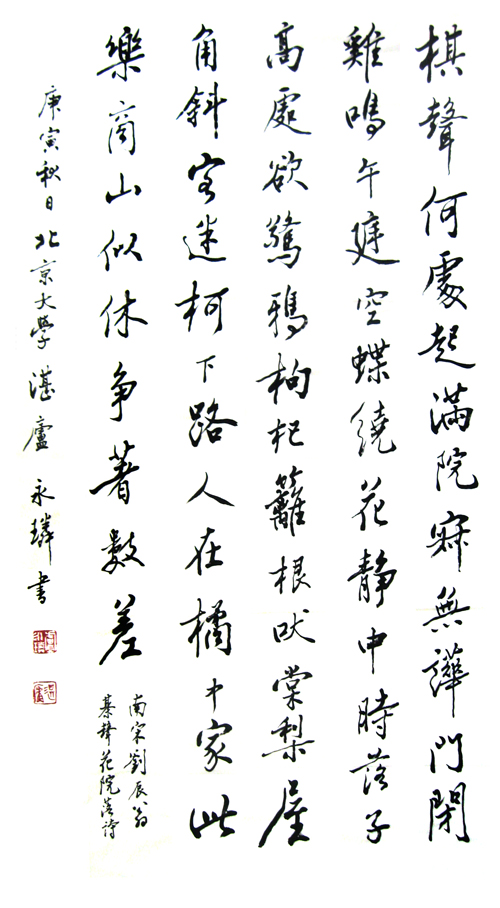 棋聲何處起滿院寂無譁門閉
雞鳴午庭空蝶繞花靜中時落子
高處欲驚鴉枸杞籬根吠棠梨屋
角斜客迷柯下路人在橘中家此
樂商山似休爭著數差
南宋劉辰翁
棊聲花院落詩
庚寅秋日北京大學湛廬永璘書